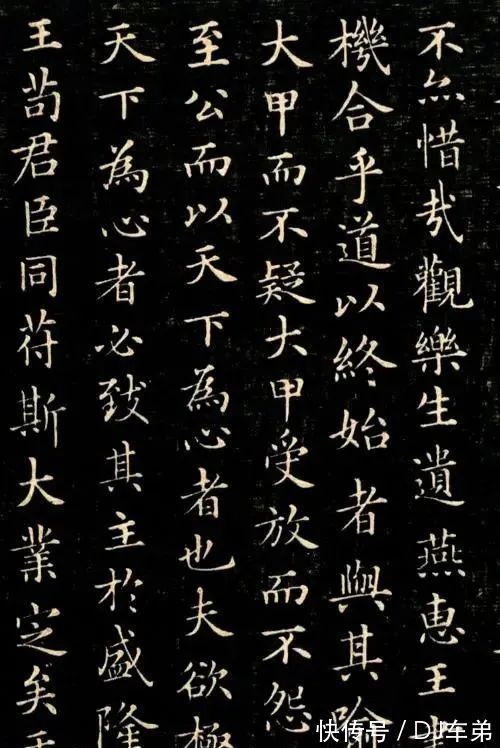 不亦惜哉觀樂生遺燕惠王
機合乎道以終始者與其喻
大甲而不疑大甲受放而不怨
至公而以天下為心者也夫欲極
天下為心者必致其主於盛隆
王苟君臣同苻斯大業定矣
快传号 / DJ车弟